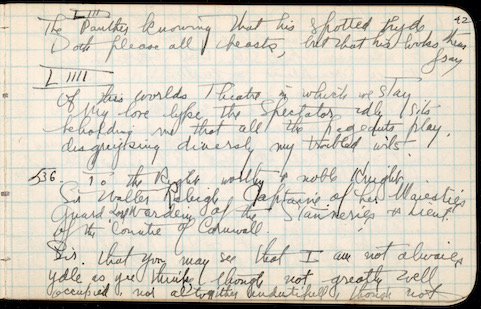 42
L III
The Panther knowing that his spotted hyde
Doth please all beasts, but that his looks them
fray
L IIII
Of this worlds Theatre in which we stay,
My love lyke the Spectator ydly sits
beholding me that all the pageants play,
disguysing diversly my troubled wits.
536. To the Right worthy & noble Knight
Sir Walter Raleigh, Captaine of her Maiesties
Guard, Lord Wardein of the Stanneries & Lieut.
of the Countie of Cornwall.
Sir. that you may see that I am not alwaies
ydle as yee thinke, though not greatly well
occupied, nor altogither undutifull, though not